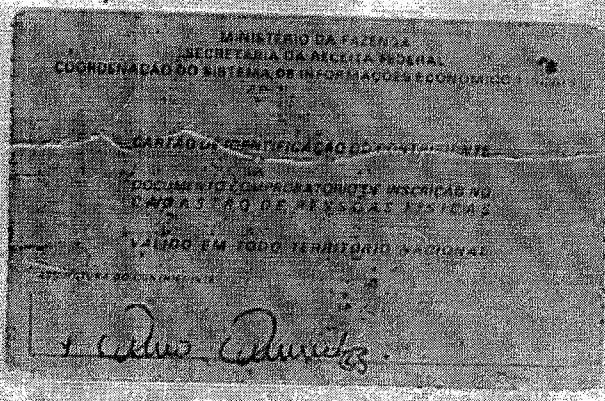 MINISTÉRIO DA FAZENDA
SECRETARIA DA RECEITA FEDERAL
COORDENAÇÃO DO SISTEMA DE INFORMAÇÕES ECONÔMICO
CARTÃO DE IDENTIFICAÇÃO DO CONTRIBUINTE
DOCUMENTO COMPROBATÓRIO DE INSCRIÇÃO NO
CADASTRO DE PESSOAS FÍSICAS
VÁLIDO EM TODO TERRITÓRIO NACIONAL